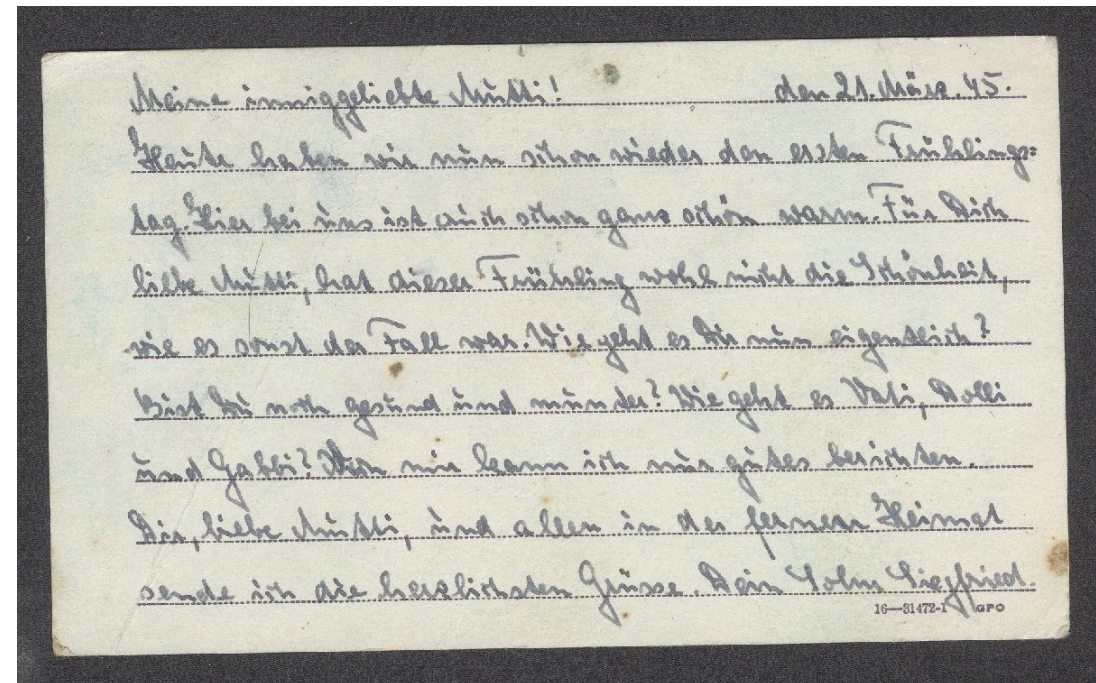 Meine inniggeliebte Mutti! den 21. März. 45.
Heute haben wir nun schon wieder den ersten Frühlings=
tag. Hier bei uns ist auch schon ganz schön warm. Für Dich
liebe Mutti, hat dieser Frühling wohl nicht die Schönheit,
wie es sonst der Fall war. Wie geht es Dir nun eigentlich?
Bist Du noch gesund und munter? Wie geht es Vati, Dolli
und Gabbi? Von mir kann ich nur gutes berichten.
Dir, liebe Mutti, und allen in der fernen Heimat
sende ich die herzlichsten Grüsse. Dein Sohn Siegfried.
16—31472-1 GPO